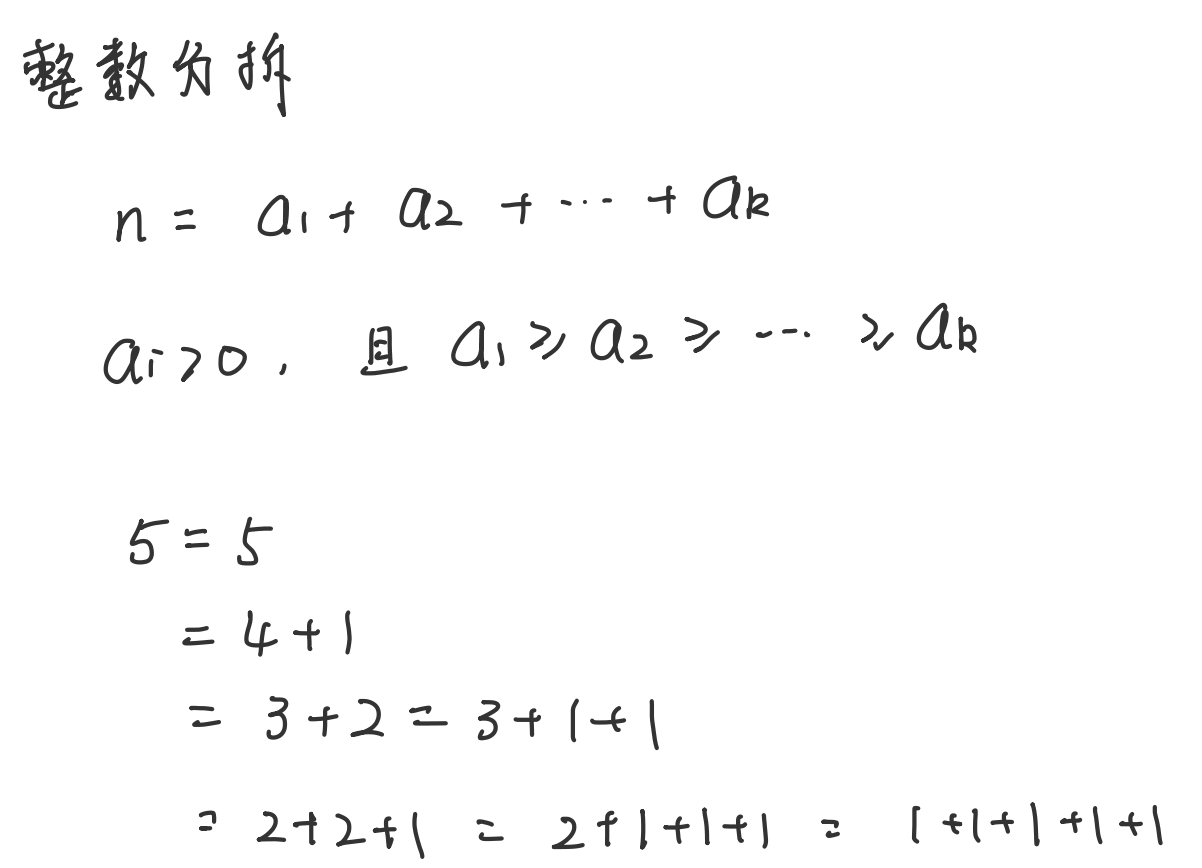 整数分拆
n = a₁ + a₂ + ⋯ + aₖ
aᵢ > 0, 且 a₁ ⩾ a₂ ⩾ ⋯ ⩾ aₖ
5 = 5
= 4 + 1
= 3 + 2 = 3 + 1 + 1
= 2 + 2 + 1 = 2 + 1 + 1 + 1 = 1 + 1 + 1 + 1 + 1